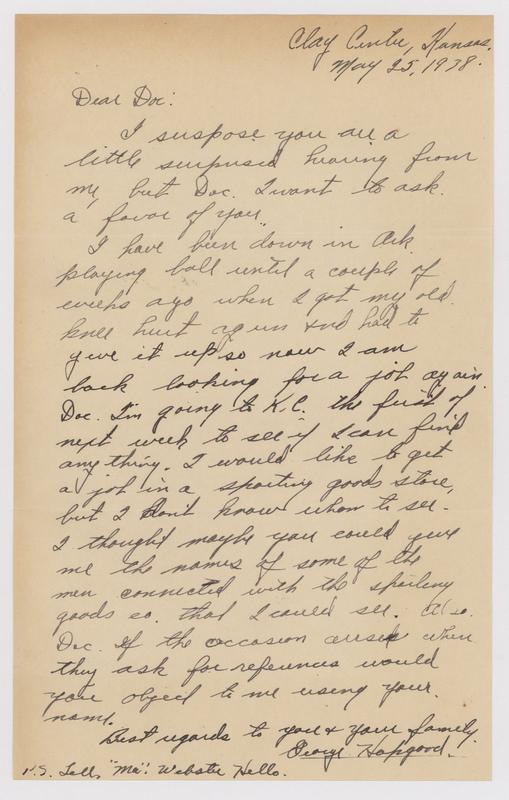 Clay Center, Kansas.
May 25, 1938.
Dear Doc:
I suspose you are a
little surprised hearing from
me, but Doc. I want to ask
a favor of you.
I have been down in Ark.
playing ball until a couple of
weeks ago when I got my old
knee hurt again and had to
give it up so now I am
back looking for a job again.
Doc. I'm going to K.C. the first of
next week to see if I can find
anything. I would like to get
a job in a sporting goods store,
but I don't know whom to see.
I thought maybe you could give
me the names of some of the
men connected with the sporting
goods co. that I could see. Also.
Doc. if the occasion arises when
they ask for references would
you object to me using your
name.
Best regards to you & your family.
George Hapgood.
P.S. Tell "Ma" Webster Hello.